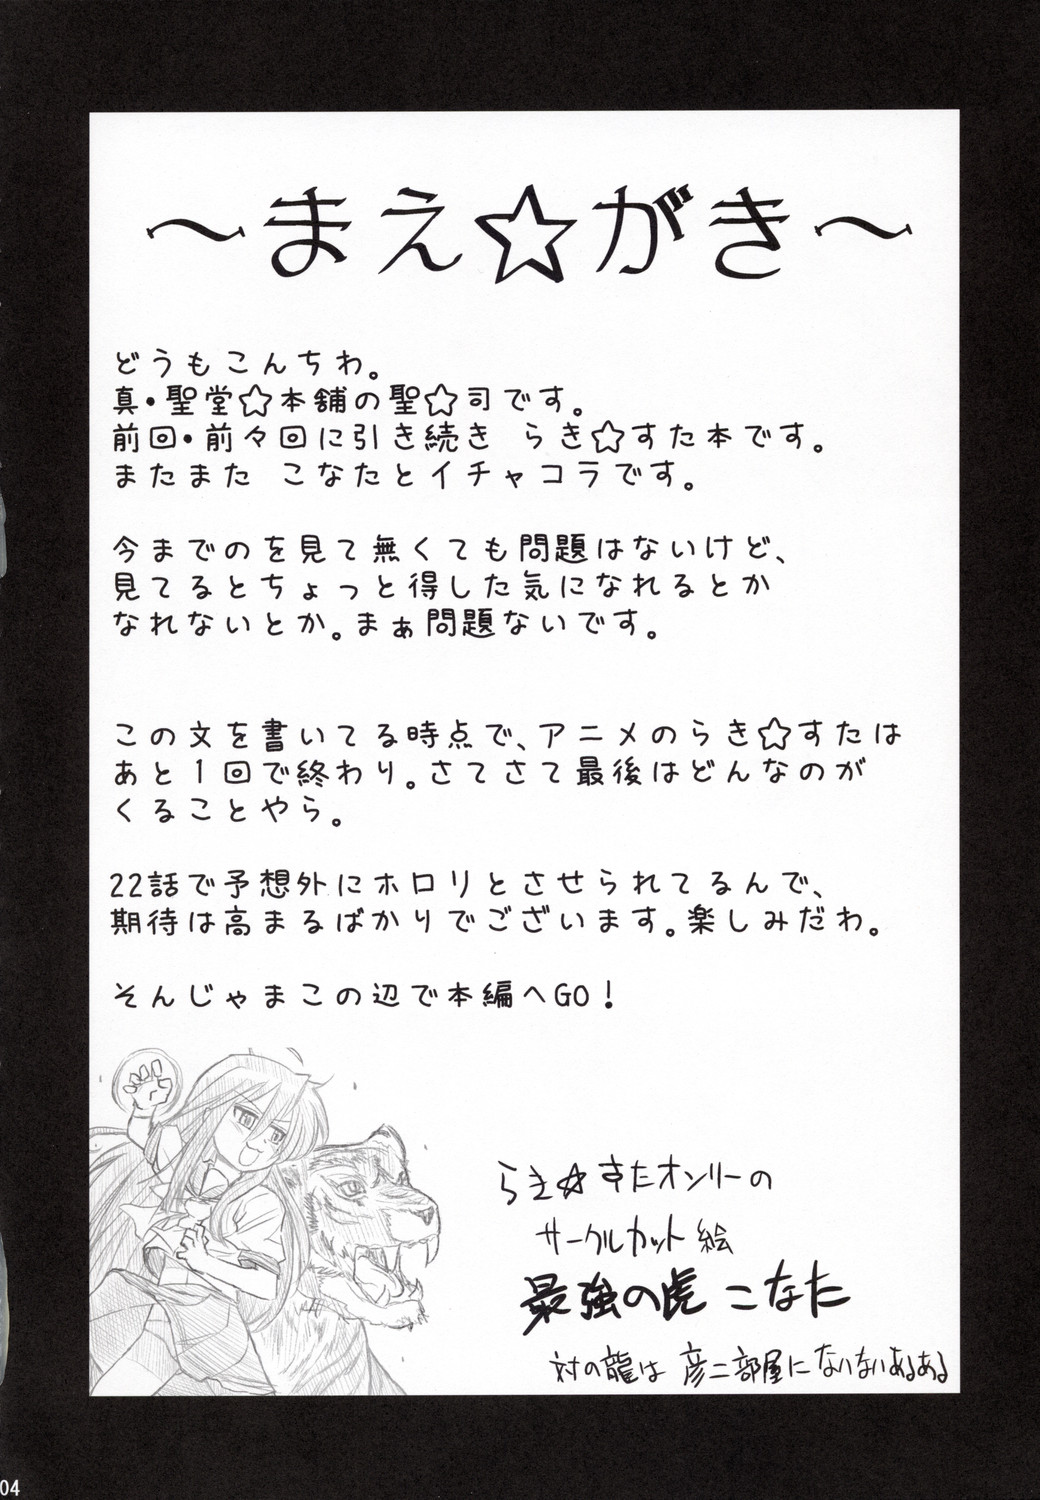 ～まえ☆がき～
どうもこんちわ。
真・聖堂☆本舗の聖☆司です。
前回・前々回に引き続き らき☆すた本です。
またまた こなたとイチャコラです。
今までのを見て無くても問題はないけど、
見てるとちょっと得した気になれるとか
なれないとか。まぁ問題ないです。
この文を書いてる時点で、アニメのらき☆すたは
あと1回で終わり。さてさて最後はどんなのが
くることやら。
22話で予想外にホロリとさせられてるんで、
期待は高まるばかりでございます。楽しみだわ。
そんじゃまこの辺で本編へGO！
らき☆すたオンリーの
サークルカット絵
最強の虎 こなた
対の龍は 彦二部屋に ないないあるある
04